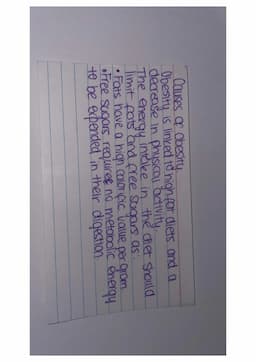 Causes of obesity
Obesity is linked to high fat diets and a
decrease in physical activity.
The energy intake in the diet should
limit fats and free sugars as:
• Fats have a high calorific value per gram
• Free sugars require no metabolic energy
to be expended in their digestion